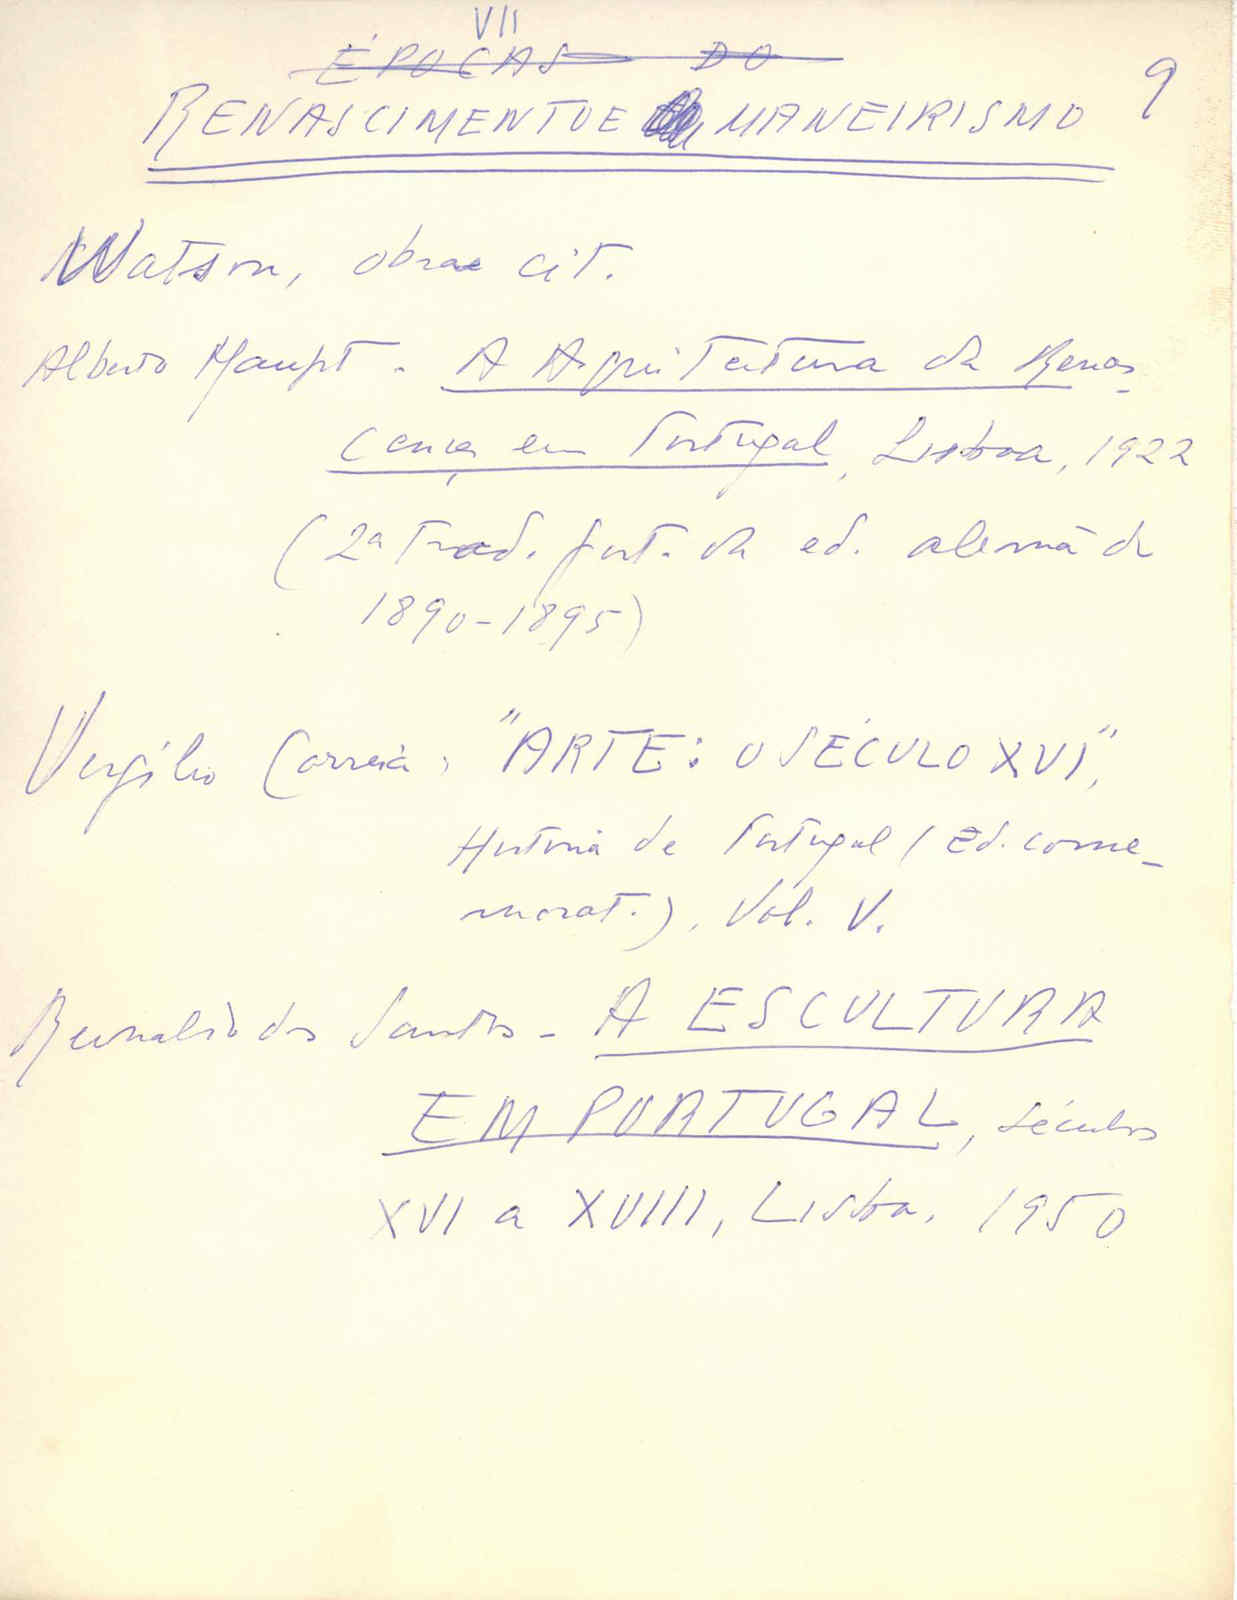 VII
ÉPOCAS DO
9
RENASCIMENTO E MANEIRISMO
Watson, obra cit.
Alberto Haupt - A Arquitectura da Renas-
cença em Portugal, Lisboa, 1922
(2ª trad. port. da ed. alemã de
1890-1895)
Vergílio Correia, "ARTE: O SÉCULO XVI",
História de Portugal (Ed. come-
morat.), Vol. V.
Reinaldo dos Santos - A ESCULTURA
EM PORTUGAL, séculos
XVI a XVIII, Lisboa, 1950